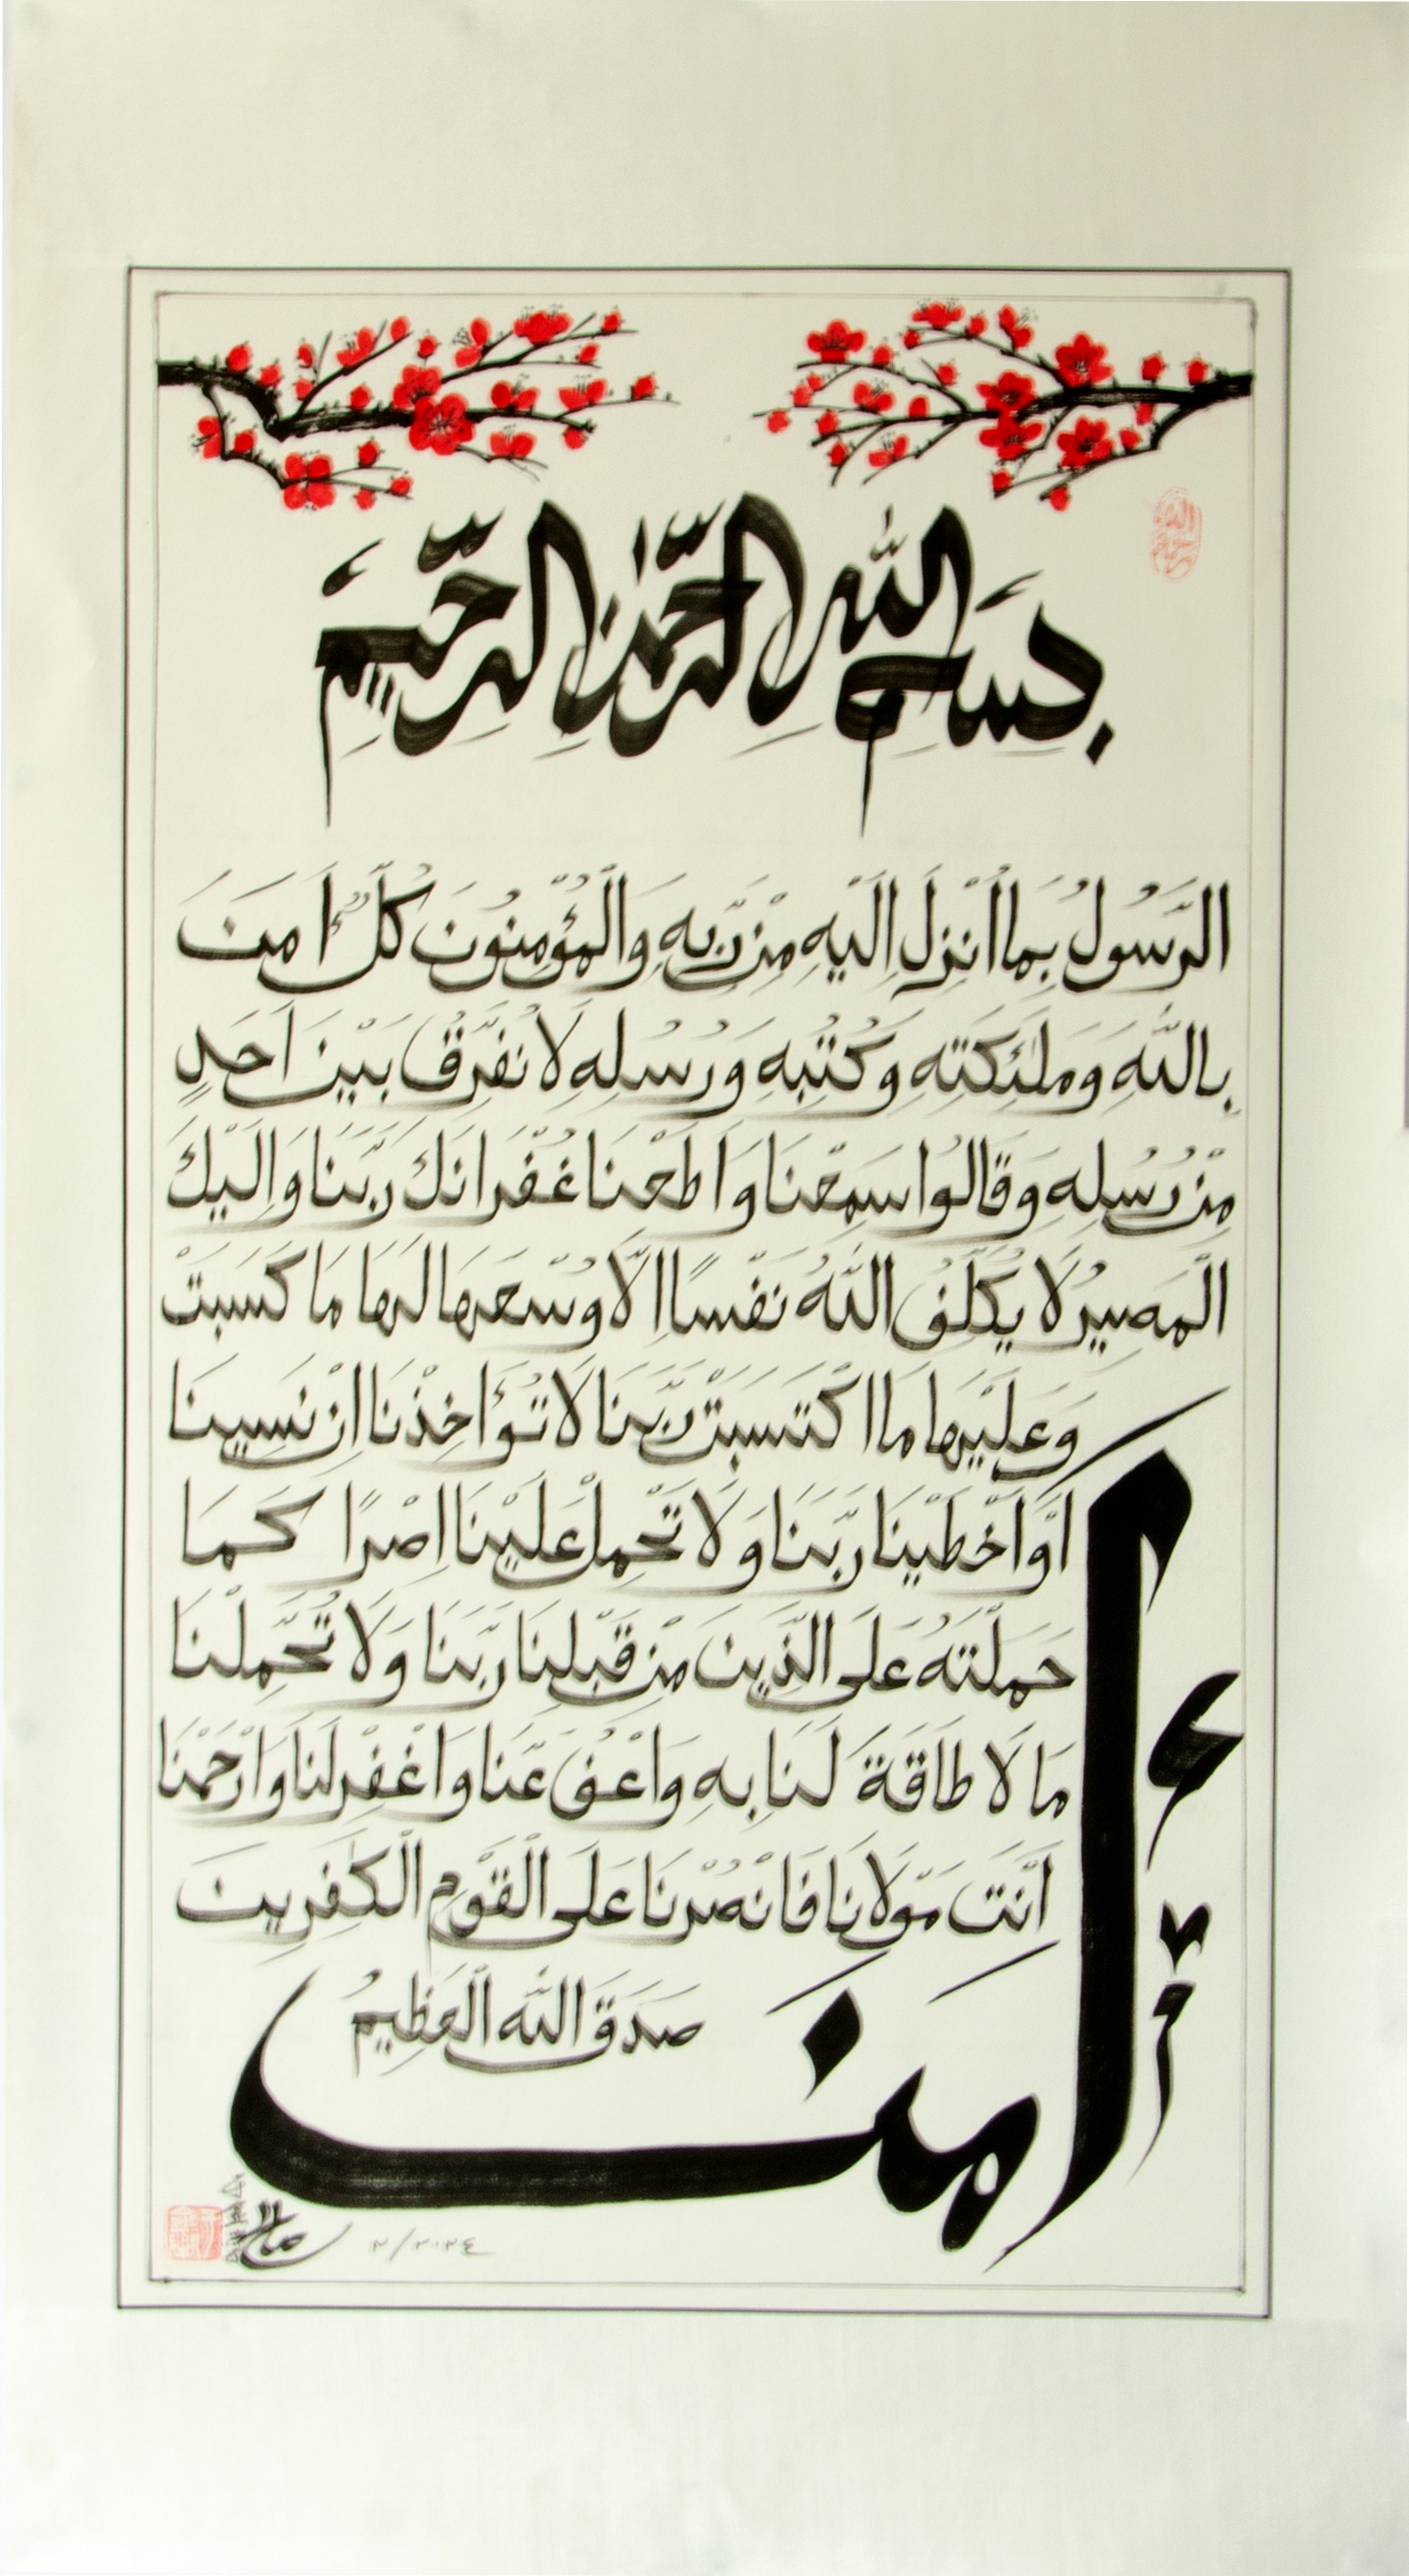 بِسْمِ اللّٰهِ الرَّحْمٰنِ الرَّحِيْمِ
اٰمَنَ
الرَّسُولُ بِمَا اُنْزِلَ اِلَيْهِ مِنْ رَّبِّهِ وَالْمُؤْمِنُونَ كُلٌّ اٰمَنَ
بِاللّٰهِ وَمَلٰئِكَتِهِ وَكُتُبِهِ وَرُسُلِهِ لَا نُفَرِّقُ بَيْنَ اَحَدٍ
مِنْ رُسُلِهِ وَقَالُوا سَمِعْنَا وَاَطَعْنَا غُفْرَانَكَ رَبَّنَا وَاِلَيْكَ
الْمَصِيْرُ لَا يُكَلِّفُ اللّٰهُ نَفْسًا اِلَّا وُسْعَهَا لَهَا مَا كَسَبَتْ
وَعَلَيْهَا مَا اكْتَسَبَتْ رَبَّنَا لَا تُؤَاخِذْنَا اِنْ نَسِينَا
اَوْ اَخْطَيْنَا رَبَّنَا وَلَا تَحْمِلْ عَلَيْنَا اِصْرًا كَمَا
حَمَلْتَهُ عَلَى الَّذِينَ مِنْ قَبْلِنَا رَبَّنَا وَلَا تُحَمِّلْنَا
مَا لَا طَاقَةَ لَنَا بِهِ وَاعْفُ عَنَّا وَاغْفِرْ لَنَا وَارْحَمْنَا
اَنْتَ مَوْلَانَا فَانْصُرْنَا عَلَى الْقَوْمِ الْكٰفِرِينَ
صَدَقَ اللّٰهُ الْعَظِيمُ